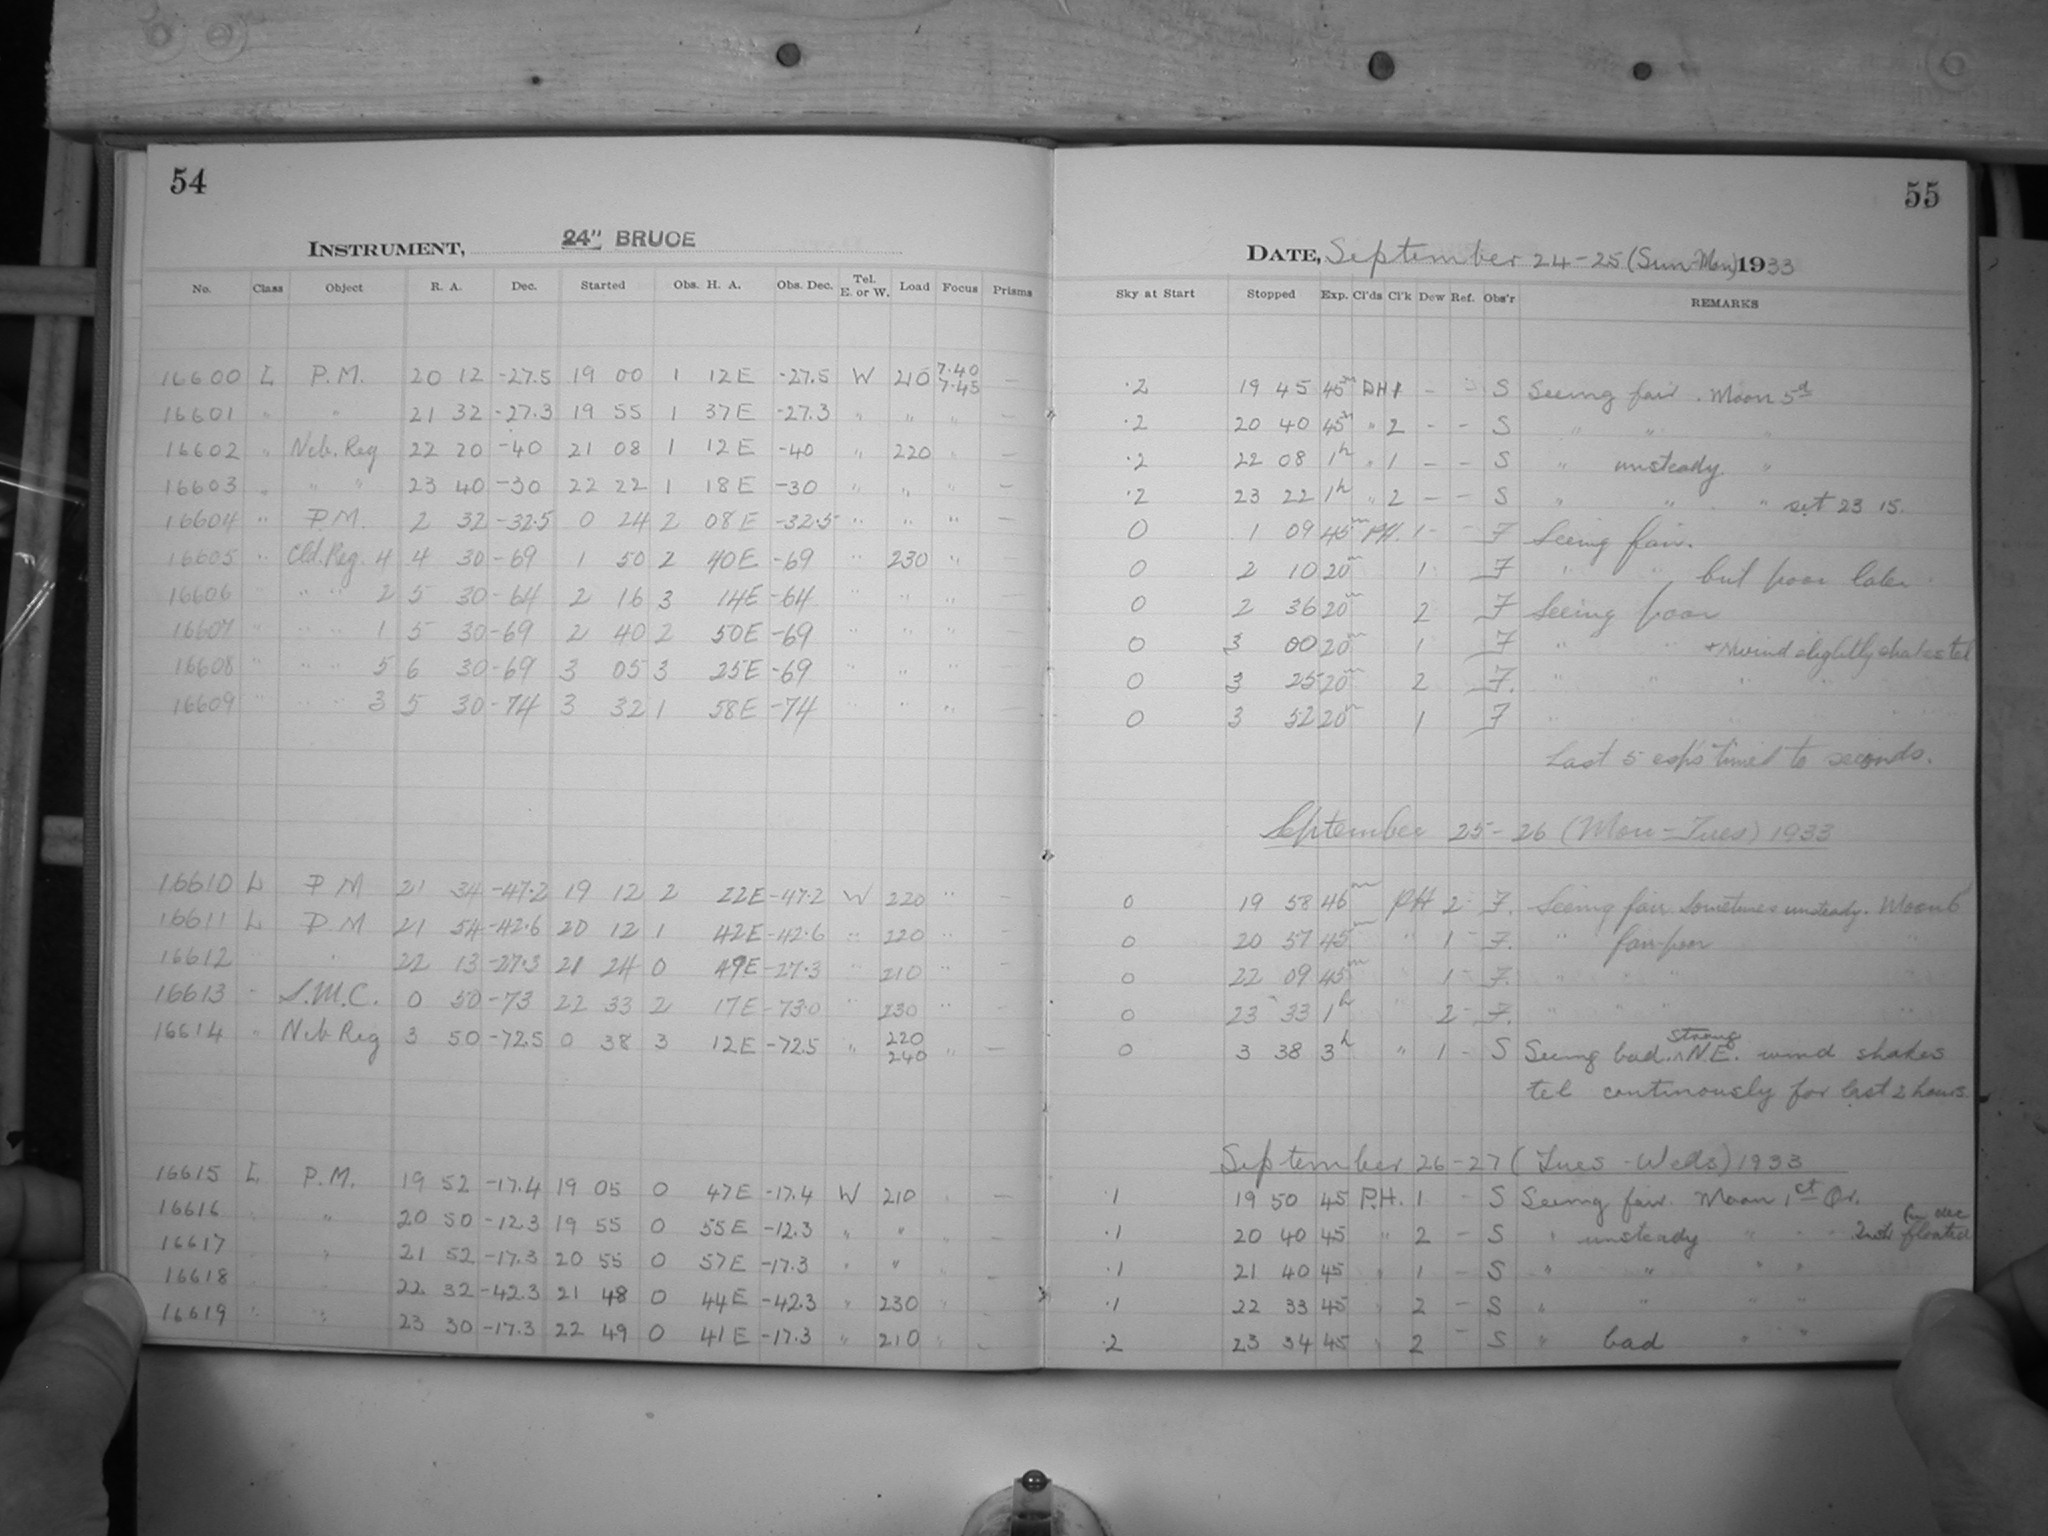 54
INSTRUMENT, 24" BRUCE
No. Class Object R. A. Dec. Started Obs. H. A. Obs. Dec. Tel. E. or W. Load Focus Prisms
16600 L P.M. 20 12 -27.5 19 00 1 12E -27.5 W 210 7.40 7.45 —
16601 " " 21 32 -27.3 19 55 1 37E -27.3 " " " —
16602 " Neb. Reg 22 20 -40 21 08 1 12E -40 " 220 " —
16603 " " " 23 40 -30 22 22 1 18E -30 " " " —
16604 " P.M. 2 32 -32.5 0 24 2 08E -32.5 " " " —
16605 " Cld. Reg. 4 4 30 -69 1 50 2 40E -69 " 230 "
16606 " " " 2 5 30 -64 2 16 3 14E -64 " " "
16607 " " " 1 5 30 -69 2 40 2 50E -69 " " "
16608 " " " 5 6 30 -69 3 05 3 25E -69 " "
16609 " " " 3 5 30 -74 3 32 1 58E -74 " " "
16610 L P M 21 34 -47.2 19 12 2 22E -47.2 W 220 " —
16611 L P M 21 54 -42.6 20 12 1 42E -42.6 " 220 " —
16612 " 22 13 -27.3 21 24 0 49E -27.3 " 210 " —
16613 " S.M.C. 0 50 -73 22 33 2 17E -73.0 " 230 " —
16614 " Neb Reg 3 50 -72.5 0 38 3 12E -72.5 " 220 240 " —
16615 L P.M. 19 52 -17.4 19 05 0 47E -17.4 W 210 " —
16616 " " 20 50 -12.3 19 55 0 55E -12.3 " " " —
16617 " " 21 52 -17.3 20 55 0 57E -17.3 " " "
16618 " " 22 32 -42.3 21 48 0 44E -42.3 " 230 " —
16619 " " 23 30 -17.3 22 49 0 41E -17.3 " 210 " —
55
DATE, September 24-25 (Sun-Mon) 1933
Sky at Start Stopped Exp. Cl'ds Cl'k Dew Ref. Obs'r REMARKS
.2 19 45 45m PH 1 - - S Seeing fair. Moon 5d
.2 20 40 45m " 2 - - S " " "
.2 22 08 1h " 1 - - S " unsteady. "
.2 23 22 1h " 2 - - S " " " set 23 15.
0 1 09 45m PH. 1 - - F Seeing fair.
0 2 10 20m 1 F " " but poor later
0 2 36 20m 2 F Seeing poor
0 3 00 20m 1 F " " + wind slightly shakes tel
0 3 25 20m 2 F. " " " "
0 3 52 20m 1 F "
Last 5 exps timed to seconds.
September 25-26 (Mon-Tues) 1933
0 19 58 46m PH 2 - F. Seeing fair sometimes unsteady. Moon 6
0 20 57 45m " 1 - F. " fair-poor "
0 22 09 45m " 1 - F. " "
0 23 33 1h " 2 - F. " " " "
0 3 38 3h " 1 - S Seeing bad. Strong N.E. wind shakes
tel continously for last 2 hours
September 26-27 (Tues-Weds) 1933
.1 19 50 45 P.H. 1 - S Seeing fair. Moon 1st Qr.
.1 20 40 45 " 2 - S " unsteady " " floated
.1 21 40 45 " 1 - S " " " "
.1 22 33 45 " 2 - S " " " "
.2 23 34 45 " 2 - S " bad " "